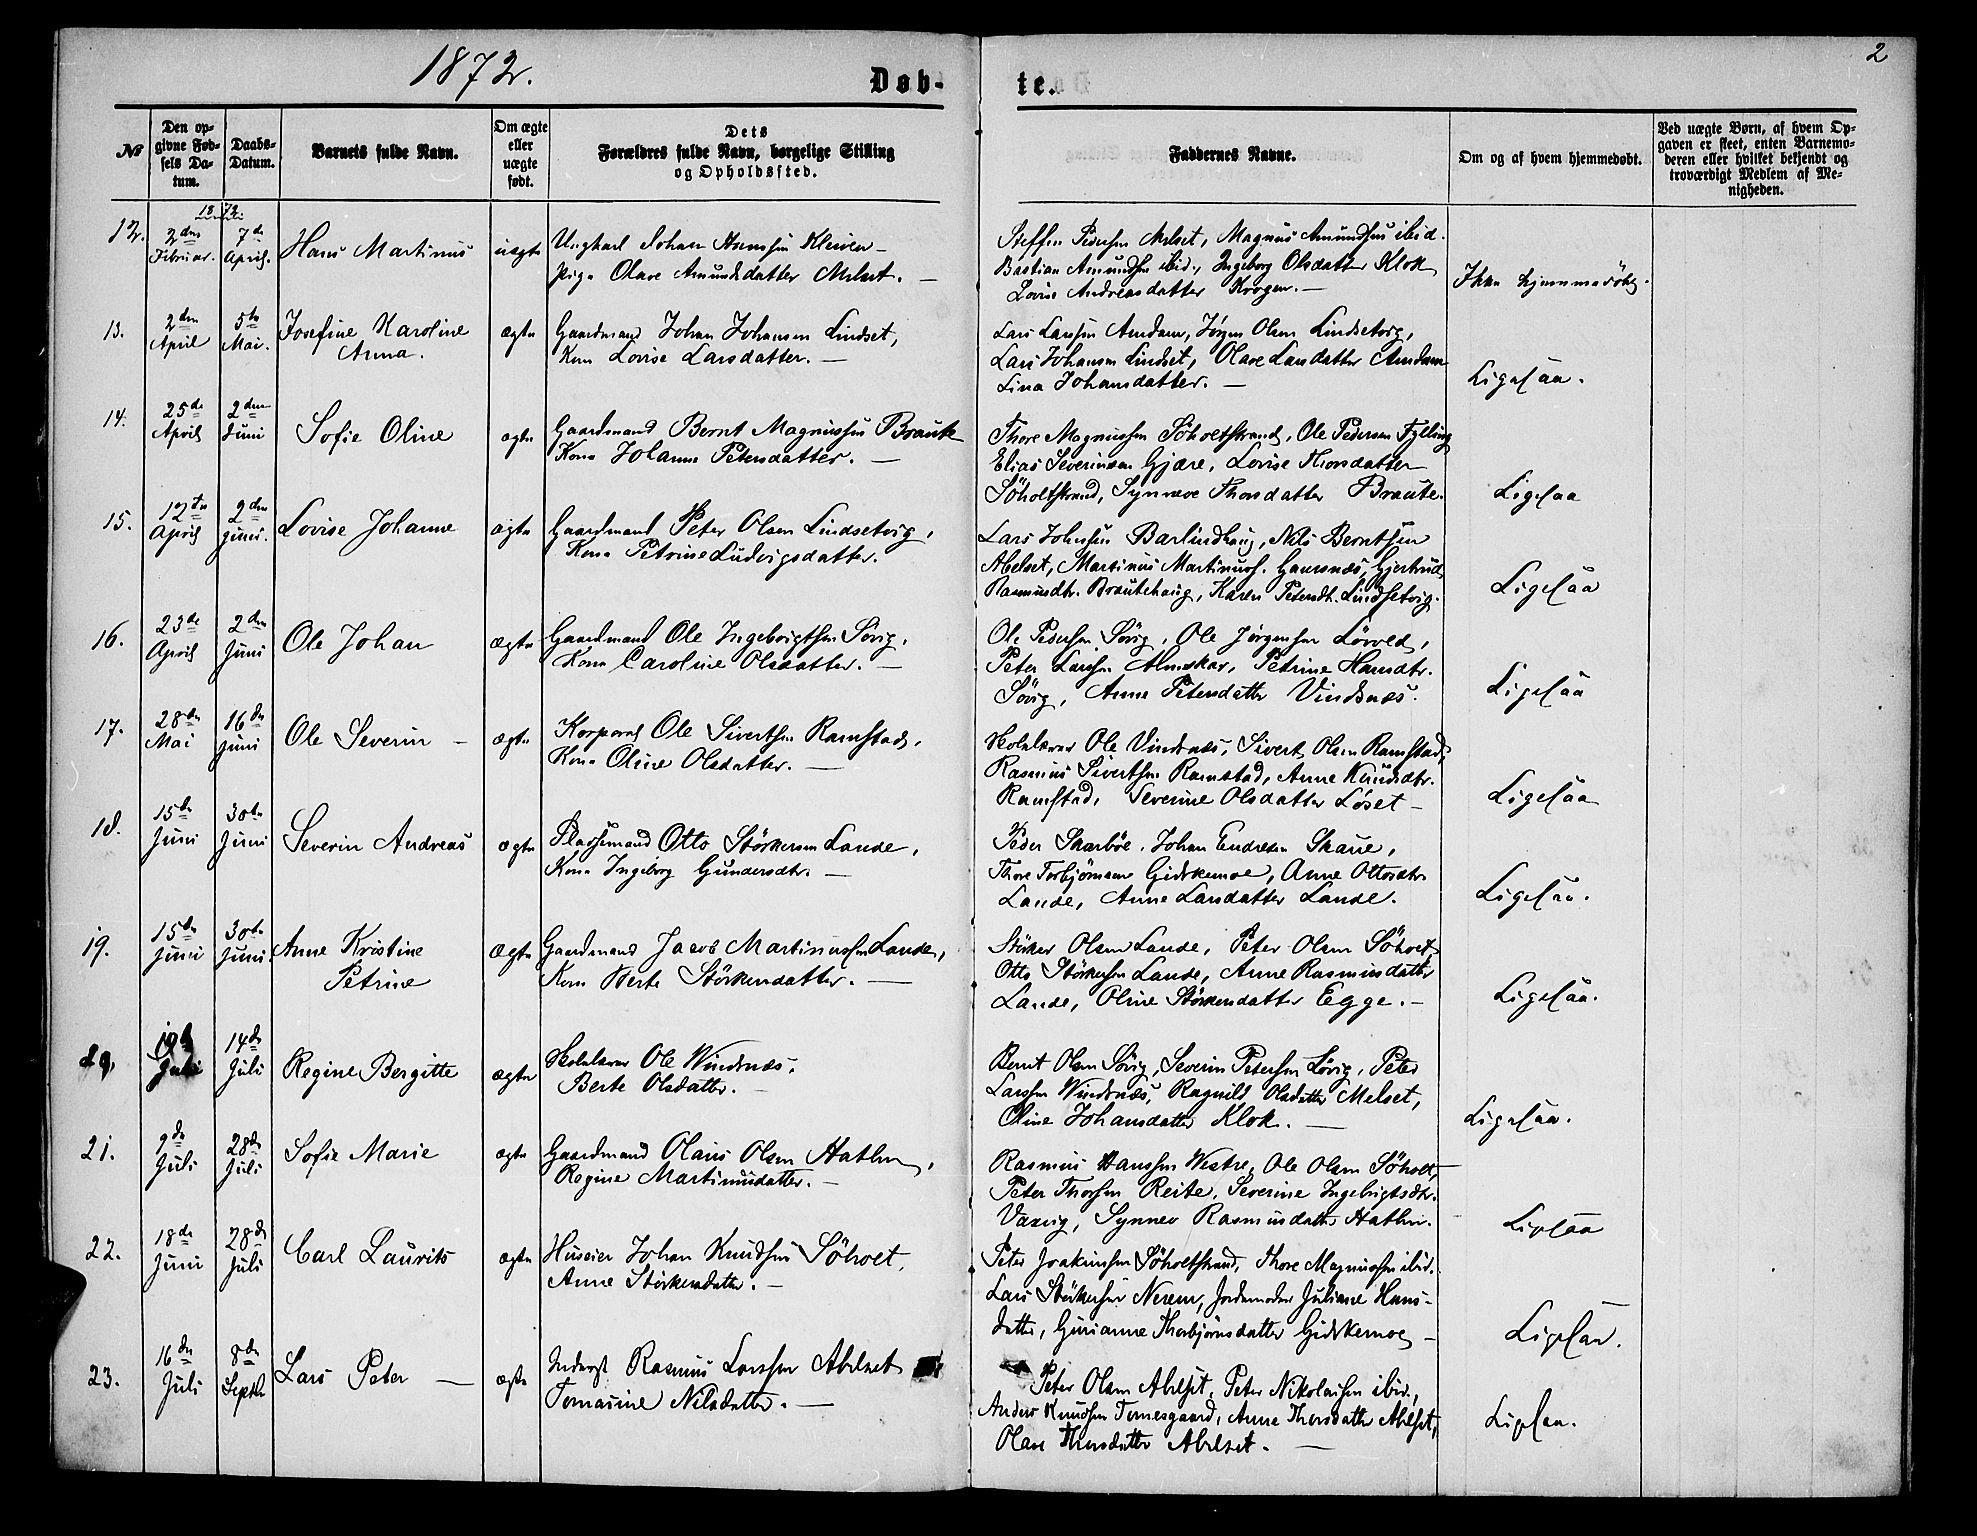 1872.
2
Døb-
te.
№
Den op-
givne Fød-
sels Da-
tum.
Daabs-
Datum.
Barnets fulde Navn.
Om ægte
eller
uægte
født.
Dets
Forældres fulde Navn, borgelige Stilling
og Opholdssted.
Faddernes Navne.
Om og af hvem hjemmedøbt.
Ved uægte Børn, af hvem Op-
gaven er skeet, enten Barnemo-
deren eller hvilket bekjendt og
troværdigt Medlem af Me-
nigheden.
1872
12.
2den
Februar.
7de
April.
Hans Martinus
uægte
Ungkarl Johan Hansen Kleiven –
Pige Olave Amundsdatter Melset. –
Steffen Pedersen Melset, Magnus Amundsen ibid.
Bastian Amundsen ibid., Ingeborg Olsdatter Klok
Lovise Andreasdatter Krogen. –
Ikke hjemmedöbt.
13.
2den
April
5te
Mai.
Josefine Karoline
Anna.
ægte
Gaardmand Johan Johansen Lindset,
Kone Lovise Larsdatter. –
Lars Larssen Amdam, Jörgen Olsen Lindsetvig,
Lars Johansen Lindset, Olave Larsdatter Amdam
Lina Johansdatter. –
Ligesaa.
14.
25de
April
2den
Juni
Sofie Oline
ægte
Gaardmand Bernt Magnussen Braute
Kone Johanne Petersdatter. –
Thore Magnussen Söholtstrand, Ole Pedersen Fylling
Elias Severinsen Gjære, Lovise Thorsdatter
Söholtstrand, Synneve Thorsdatter Braute.
Ligesaa
15.
12te
April
2den
Juni.
Lovise Johanne
ægte
Gaardmand Peter Olsen Lindsetvig,
Kone Petrine Ludvigsdatter.
Lars Johnsen Barlindhaug, Nils Berntsen
Abelset, Martinus Martinuss. Gausnæs, Gjertrud
Rasmusdtr. Brautehaug, Karen Petersdt. Lindsetvig.
Ligesaa
16.
23de
April
2den
Juni
Ole Johan
ægte
Gaardmand Ole Ingebrigtsen Sövig,
Kone Caroline Olsdatter. –
Ole Pedersen Sövig, Ole Jörgensen Lövold,
Peter Larssen Almskar, Petrine Hansdtr.
Sövig, Anne Petersdatter Vindsnæs.
Ligesaa
17.
28de
Mai
16de
Juni
Ole Severin –
ægte
Korporal Ole Sivertsen Ramstad,
Kone Oline Olsdatter. –
Skolelærer Ole Vindsnæs, Sivert Olsen Ramstad,
Rasmus Sivertsen Ramstad, Anne Knudsdtr.
Ramstad, Severine Olsdatter Løset –
Ligesaa
18.
15de
Juni
30te
Juni
Severin Andreas
ægte
Pladsemand Otto Störkersen Lande,
Kone Ingeborg Gundersdtr. –
Peder Skarböe, Johan Endresen Skaue,
Thore Torbjörnsen Gidskemoe, Anne Ottosdtr.
Lande, Anne Larsdatter Lande.
Ligesaa.
19.
15de
Juni
30te
Juni.
Anne Kristine
Petrine
Ægte
Gaardmand Jacob Martinussen Lande,
Kone Berte Störkersdatter. –
Störker Olsen Lande, Peter Olsen Söholt,
Otto Störkersen Lande, Anne Rasmusdatter
Lande, Oline Störkersdatter Egge. –
Ligesaa.
Juli
14de
Juli
Regine Bergitte
ægte
Skolelærer Ole Windsnæs,
Berte Olsdatter. –
Bernt Olsen Sövig, Severin Petersen Lövig, Peter
Larssen Windsnæs, Ragnild Olsdatter Melset,
Oline Johansdatter Klok. –
Ligesaa.
21.
9de
Juli
28de
Juli
Sofie Marie
ægte
Gaardmand Olaus Olsen Hatlen,
Regine Martinusdatter. –
Rasmus Hanssen Westre, Ole Olsen Söholt,
Peter Thorsen Reite, Severine Ingebrigtsdtr.
Vaxvig, Synnev Rasmusdatter Hatlen.
Ligesaa
22.
18de
Juni
28de
Juli
Carl Laurits
ægte
Huseier Johan Knudsen Söholt,
Anne Störkersdatter. –
Peter Joakimsen Söholtstrand, Thore Magnussen ibid.,
Lars Störkersen Nerem, Jordemoder Juliane Hans-
datter, Gurianne Thorbjörnsdatter Gidskemoe –
Ligesaa.
23.
16de
Juli
8de
Septbr
Lars Peter –
ægte
Inderst Rasmus Larssen Abelset
Tomasine Nilsdatter. –
Peter Olsen Abelset, Peter Nikolaisen ibid.,
Anders Knudsen Tomesgaard, Anne Thorsdatter Abelset,
Olave Thorsdatter Abelset. –
Ligesaa.